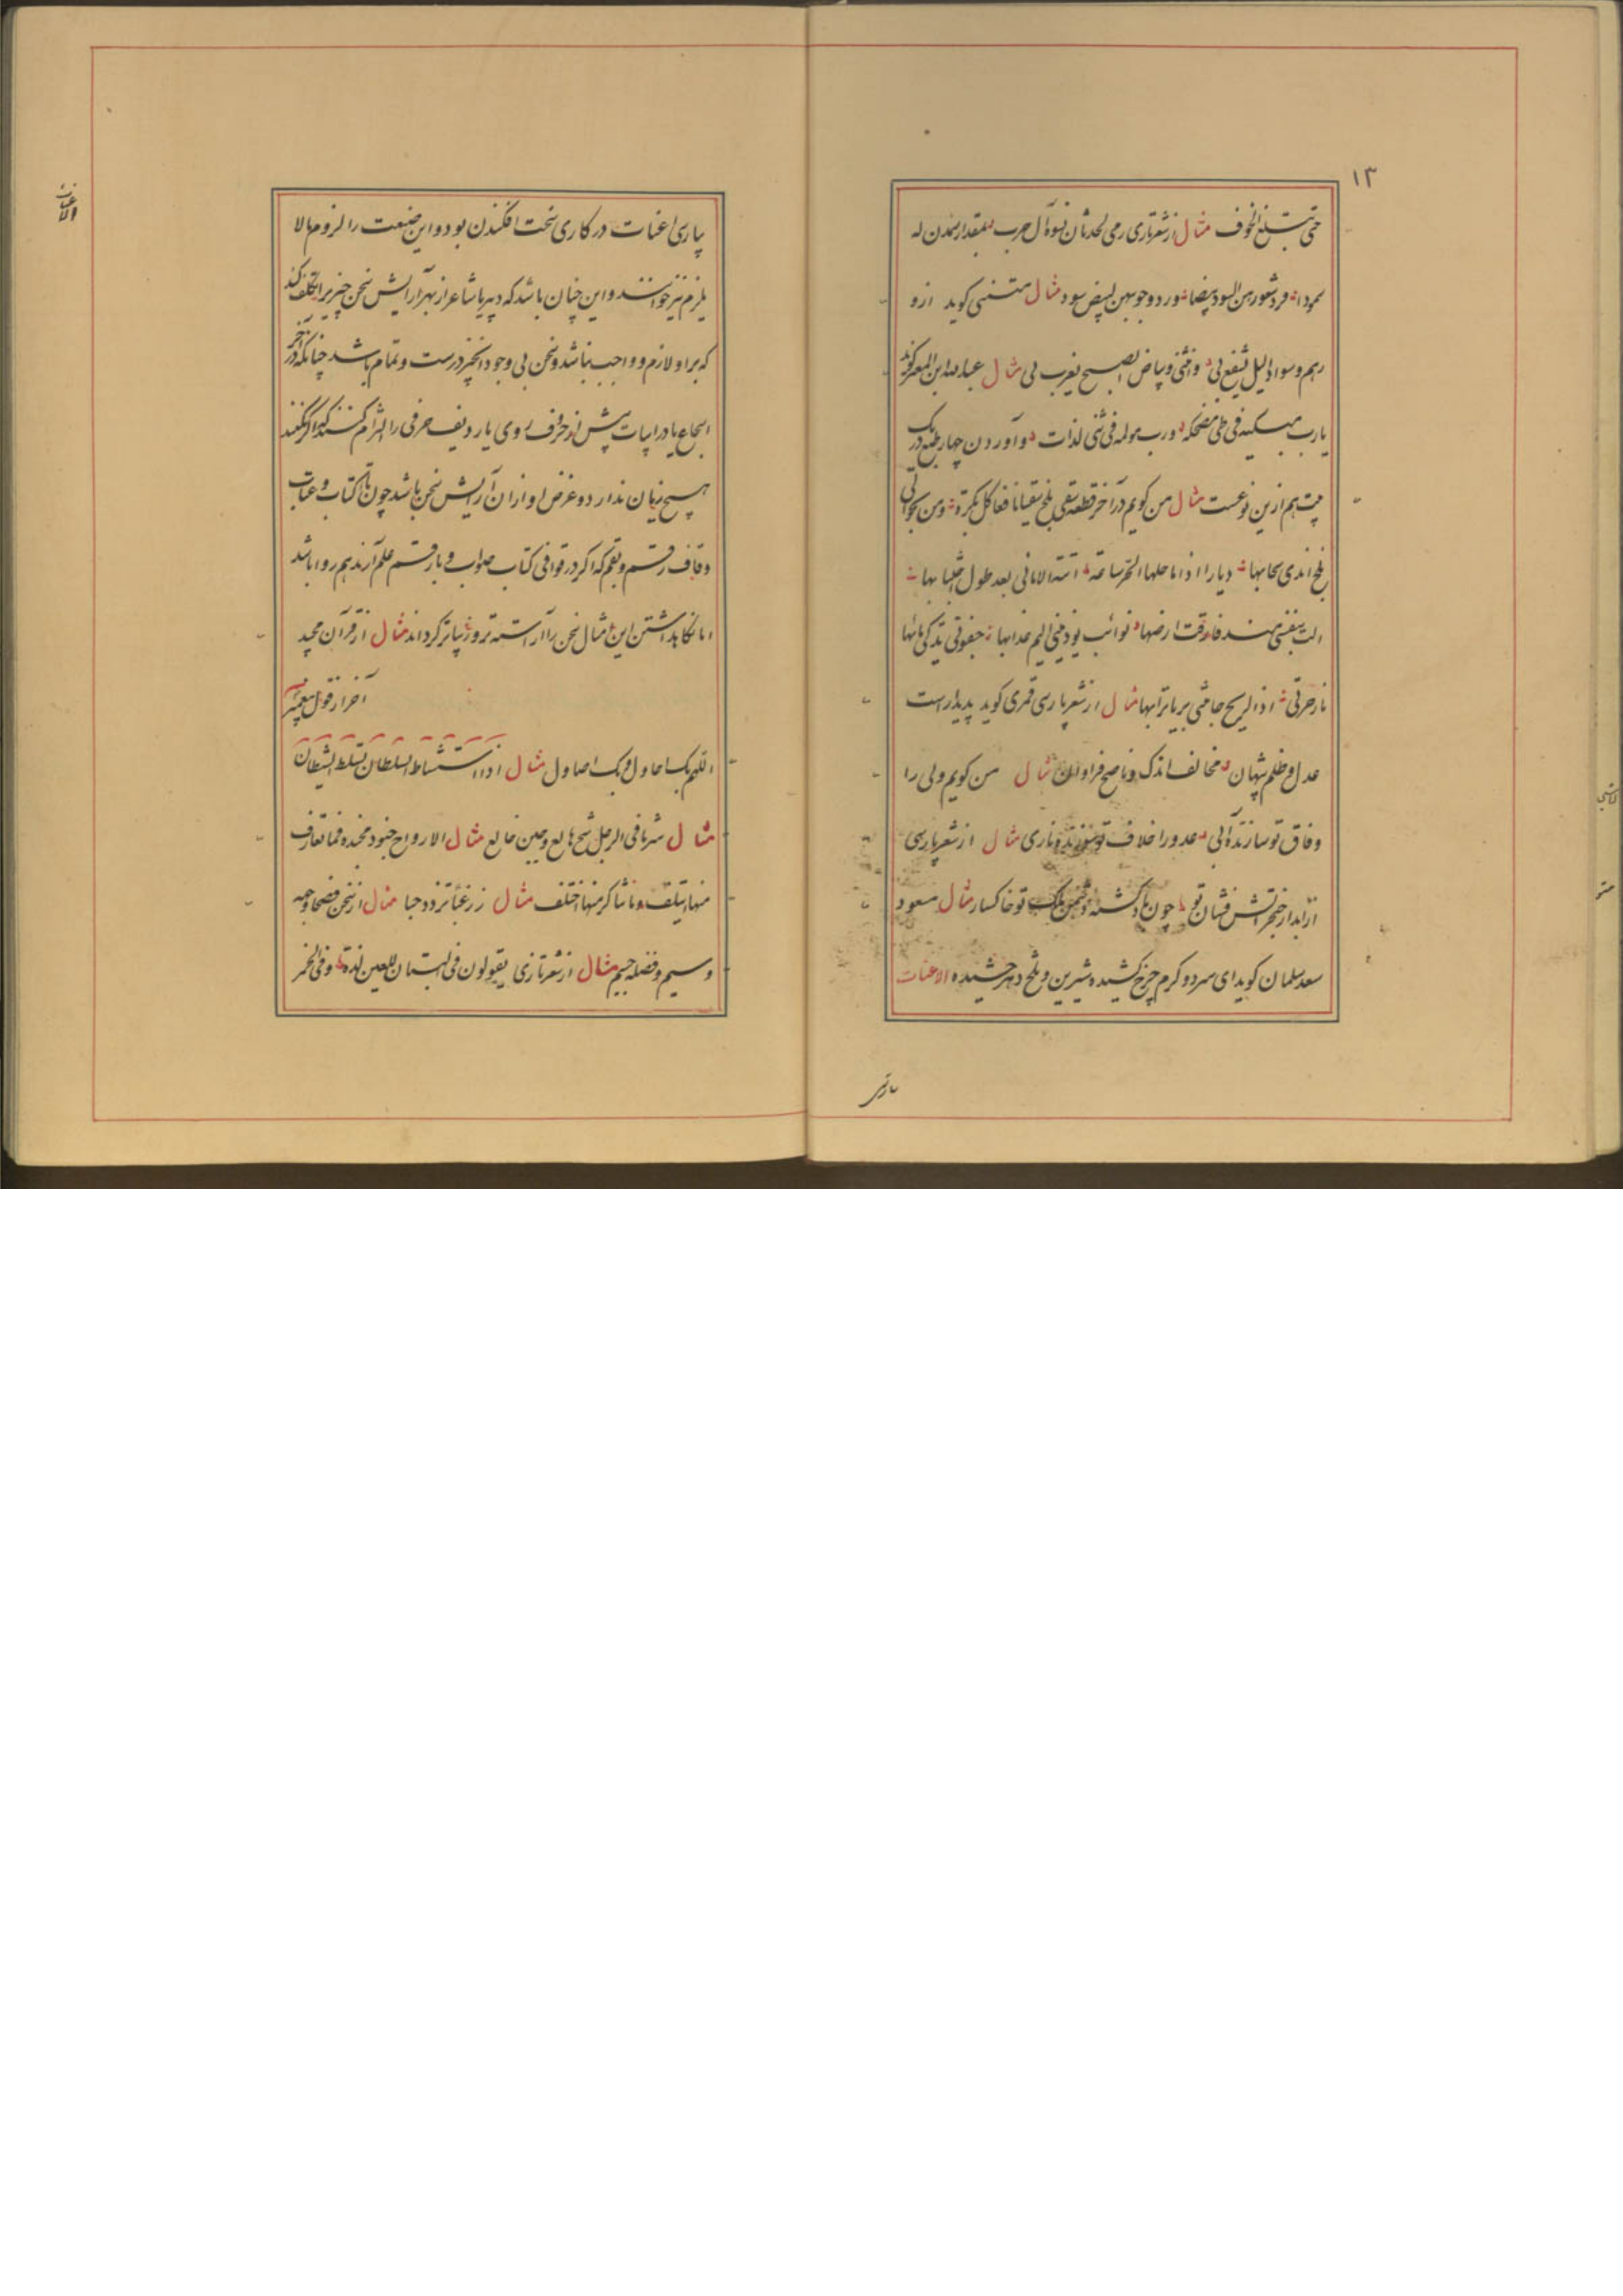 ۱۳
حتی تبلغ الخوف مثال از شعر تازی رمی الحدثان نسوة آل حرب بمقدار سمدن له
سمودا فرد شعورهن السود بیضا ورد وجوههن البیض سودا مثال متنبی کوید ازو
رهم وسواد اللیل یشفع لی وانثنی وبیاض الصبح یغری بی مثال عبدالله ابن المعتز کوید
یا رب مسکیه فی طی مضحکه ورب مولمه فی ثنی لذات وآوردن چهار طبع در یک
بیت هم ازین نوعست مثال من کویم در آخر قطعه سقی بلخ سقیانا فعا کل بکرة ومن
بلخ اندی سحابها دیارا اذا ما حلها الحر ساعة اتته الامانی بعد طول اجتنابها
الت بنفسی منذ فارقت ارضها نوائب یوذینی الیم عذابها جفونی تذکی مائها
نار حرقتی اذا الریح جاءتنی بریا ترابها مثال از شعر پارسی قمری کوید پدیدارست
عدل وظلم پنهان مخالف اندک وناصح فراوان مثال من کویم ولی را
وفاق تو سازنده آبی عدو را خلاف تو سوزنده ناری مثال از شعر پارسی
از آبدار خنجر آتش فشان تو چون باد کشته دشمن ملک تو خاکسار مثال مسعود
سعد سلمان کوید ای سرد و کرم چرخ کشیده شیرین و تلخ دهر چشیده الاعنات
پارسی
الاعنات
پارسی اعنات در کاری سخت افکندن بود و این صنعت را لزوم ما لا
یلزم نیز خوانند و این چنان باشد که دبیر یا شاعر از بهر آرایش سخن چیزی را تکلف کند
که بر او لازم و واجب نباشد و سخن بی وجود آن چیز درست و تمام باشد چنانکه در آخر
اسجاع یا در ابیات پیش از حرف روی یا ردیف حرفی را التزام کنند که اگر نکنند
هیچ زیان ندارد و غرض او از آن آرایش سخن باشد چون تا کتاب و عتاب
و قاف رقم و بقم که اکر در قوافی کتاب صواب و با رقم علم آرند هم روا باشد
اما نکاه داشتن این مثال سخن را آراسته تر و زیباتر کرداند مثال از قرآن مجید
آخر از قول پیغمبر
اللهم بک احاول وبک اصاول مثال اذا استشاط السلطان تسلط الشیطان
مثال شر ما فی الرجل شح هالع وجبن خالع مثال الارواح جنود مجندة فما تعارف
منها ایتلف وما تناکر منها اختلف مثال زر غبا تزدد حبا مثال از سخن فصحا وجه
وسیم وفضله جسیم مثال از شعر تازی یقولون فی البستان للعین لذة وفی الخمر